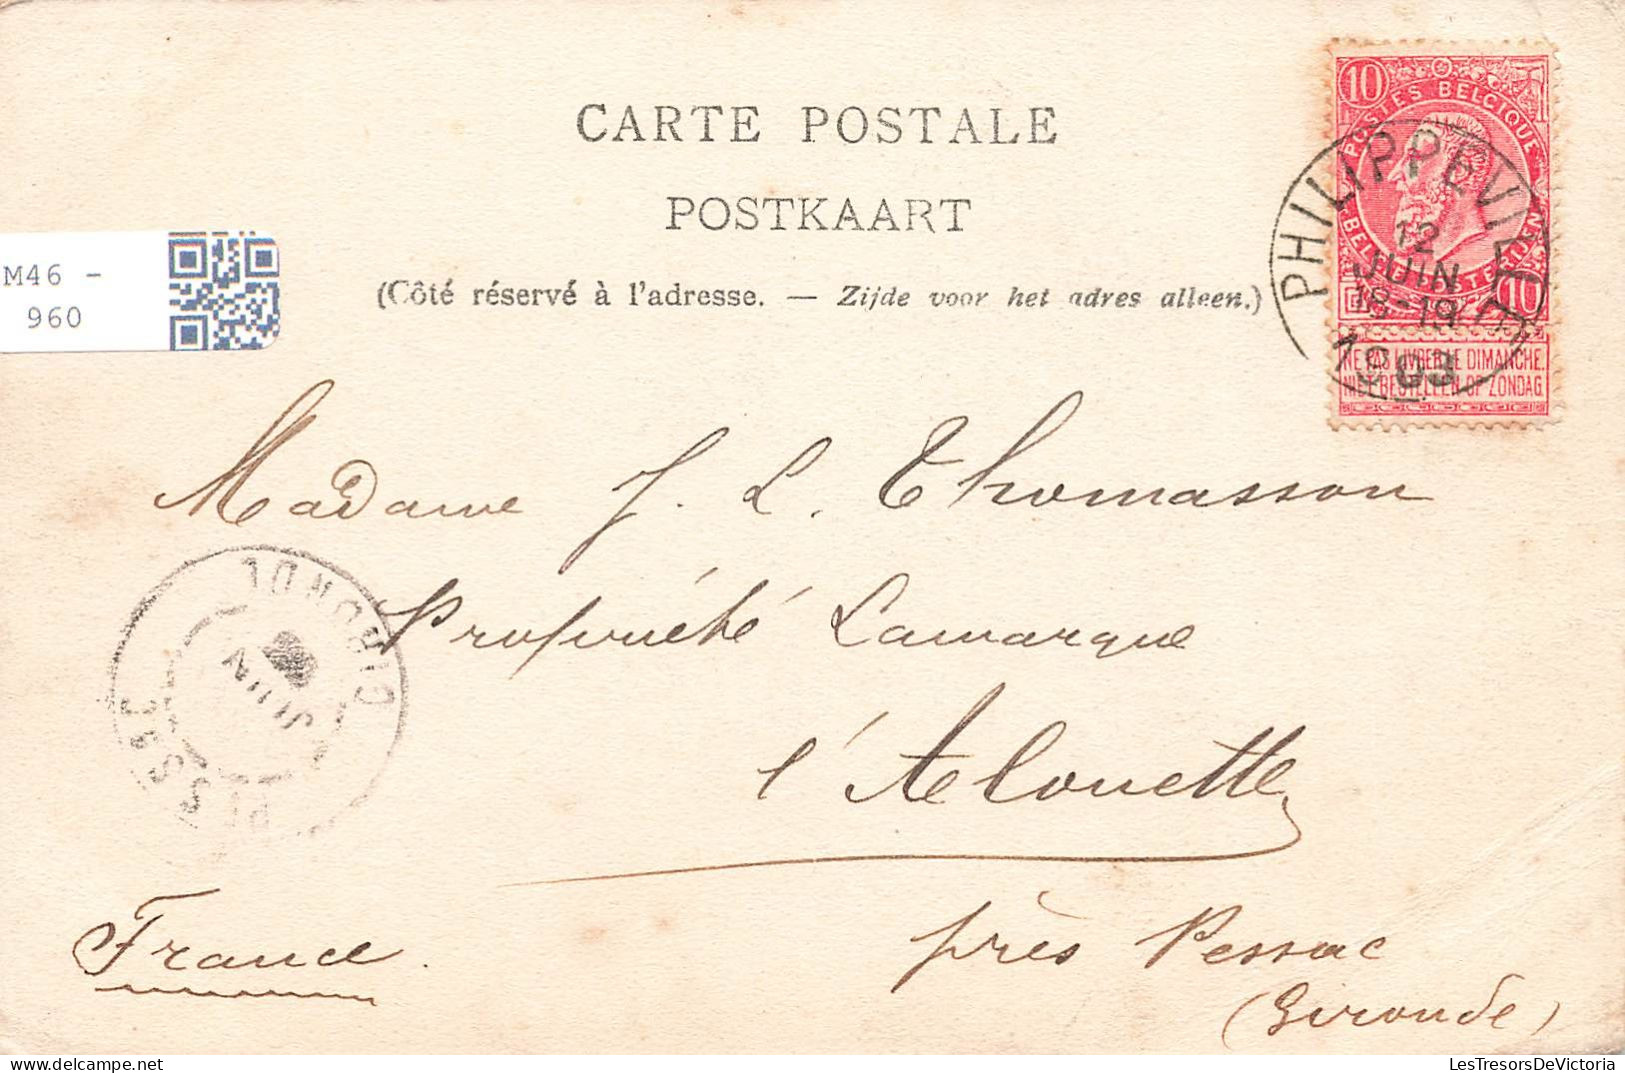 CARTE POSTALE
POSTKAART
(Côté réservé à l'adresse. — Zijde voor het adres alleen.)
M46 -
960
10
POSTES BELGIQUE
10
NE PAS LIVRER LE DIMANCHE.
NIET BESTELLEN OP ZONDAG
PHILIPPEVILLE
12
JUIN
18-19
1903
Madame J. L. Thomasson
Propriété Lamarque
l'Alouette
près Pessac
(Gironde)
France.
PESSAC
JUIN
LesTresorsDeVictoria